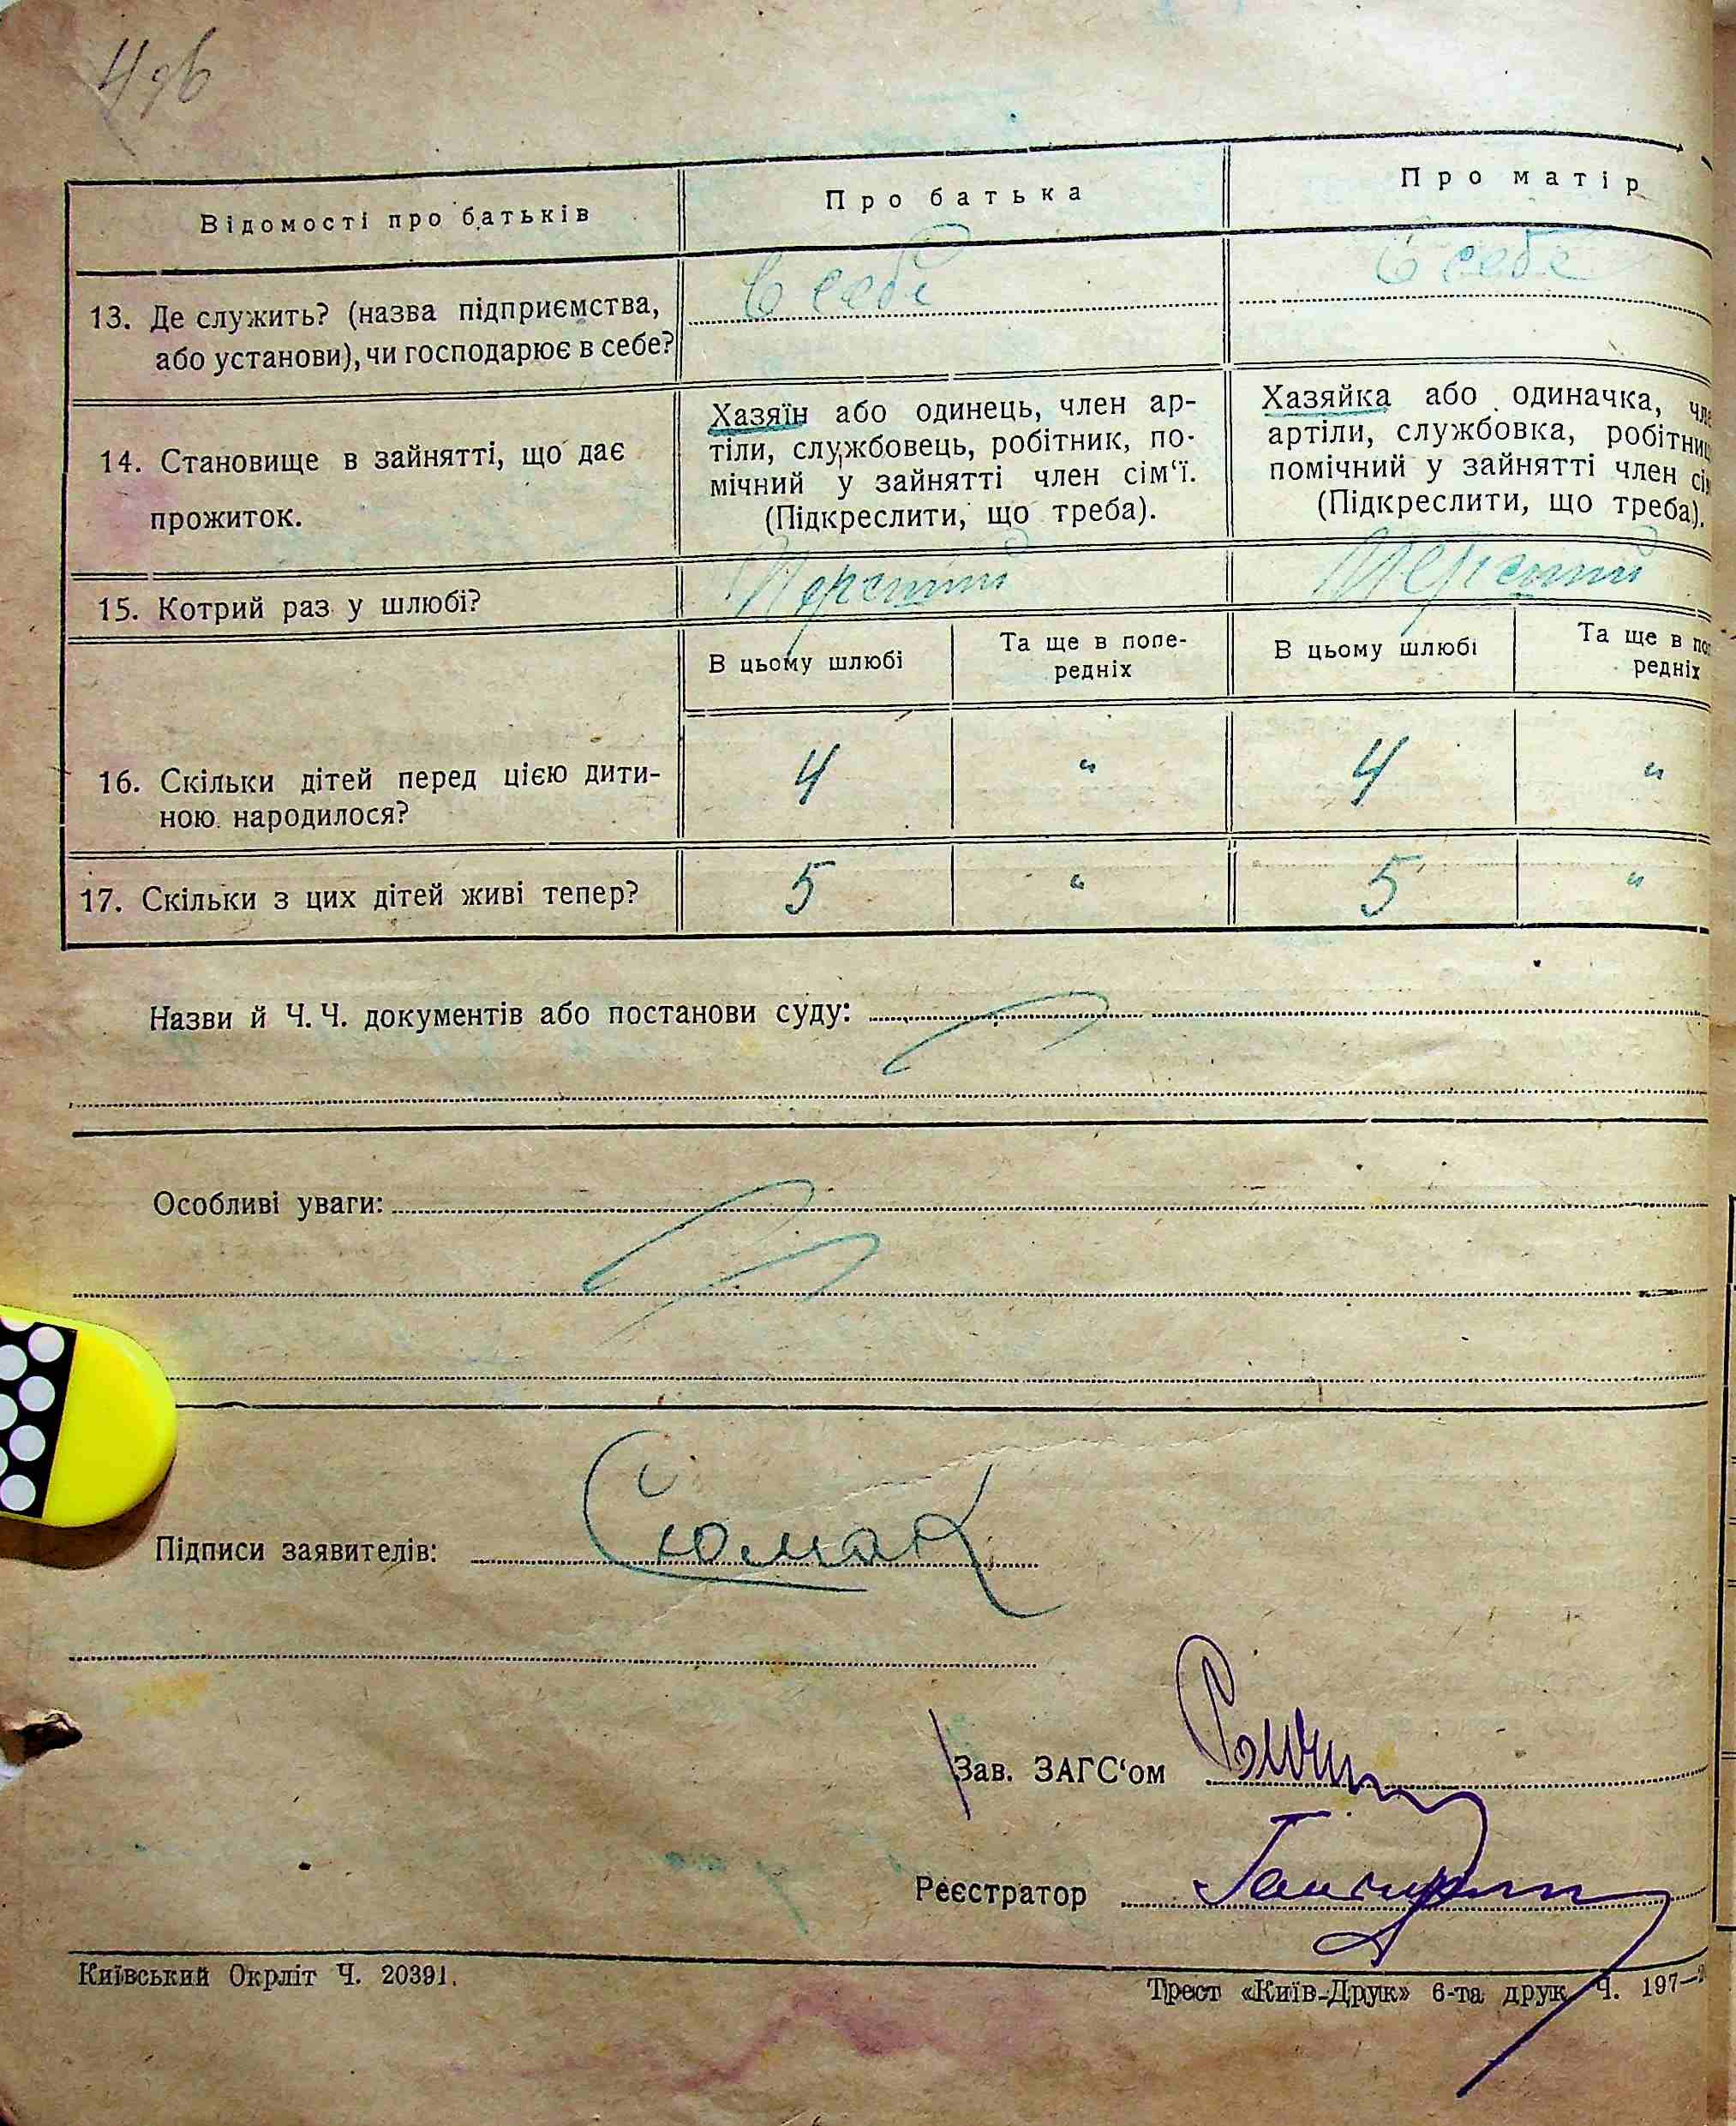 Відомості про батьків
Про батька
Про матір
13. Де служить? (назва підприємства,
або установи), чи господарює в себе?
в себе
в себе
14. Становище в зайнятті, що дає
прожиток.
Хазяїн або одинець, член ар-
тіли, службовець, робітник, по-
мічний у зайнятті член сім‘ї.
(Підкреслити, що треба).
Хазяйка або одиначка, чле
артіли, службовка, робітниц
помічний у зайнятті член сім
(Підкреслити, що треба).
15. Котрий раз у шлюбі?
Перший
Перший
В цьому шлюбі
Та ще в попе-
редніх
В цьому шлюбі
Та ще в поп
редніх
16. Скільки дітей перед цією дити-
ною народилося?
4 " 4 "
17. Скільки з цих дітей живі тепер?
5 " 5 "
Назви й Ч. Ч. документів або постанови суду:
Особливі уваги:
Підписи заявителів: Сюмак
Зав. ЗАГС‘ом
Реєстратор
Київський Окрліт Ч. 20391.
Трест «Київ-Друк» 6-та друк. Ч. 197—2